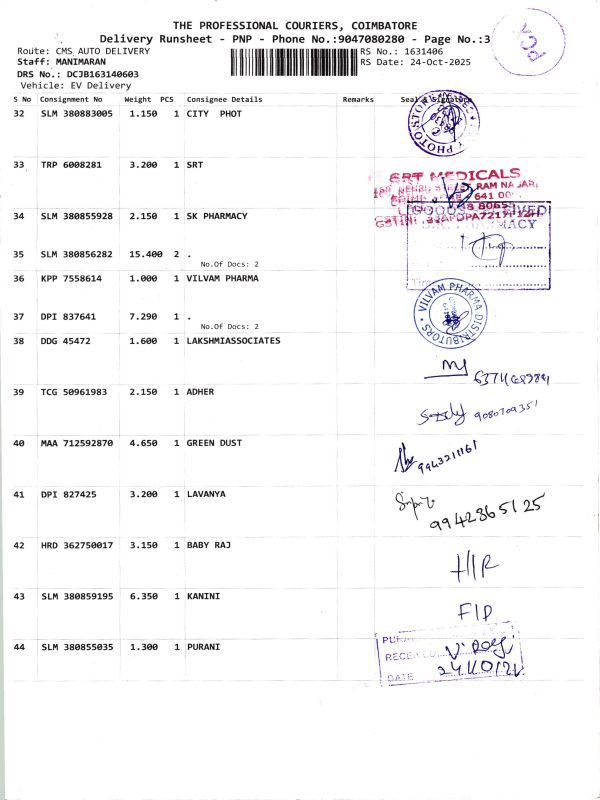 THE PROFESSIONAL COURIERS, COIMBATORE
Delivery Runsheet - PNP - Phone No.:9047080280 - Page No.:3
Route: CMS AUTO DELIVERY
RS No.: 1631406
Staff: MANIMARAN
RS Date: 24-Oct-2025
DRS No.: DCJB163140603
Vehicle: EV Delivery
S No Consignment No Weight PCS Consignee Details Remarks Seal & Signature
32 SLM 380883005 1.150 1 CITY PHOT
33 TRP 6008281 3.200 1 SRT
SRT MEDICALS
RAM NAGAR,
641 00
34 SLM 380855928 2.150 1 SK PHARMACY
35 SLM 380856282 15.400 2 .
No.Of Docs: 2
36 KPP 7558614 1.000 1 VILVAM PHARMA
VILVAM PHARMA DISTRIBUTORS
37 DPI 837641 7.290 1 .
No.Of Docs: 2
38 DDG 45472 1.600 1 LAKSHMIASSOCIATES
39 TCG 50961983 2.150 1 ADHER
9080709351
40 MAA 712592870 4.650 1 GREEN DUST
9943211161
41 DPI 827425 3.200 1 LAVANYA
9942865125
42 HRD 362750017 3.150 1 BABY RAJ
H/R
43 SLM 380859195 6.350 1 KANINI
F1D
44 SLM 380855035 1.300 1 PURANI
DATE